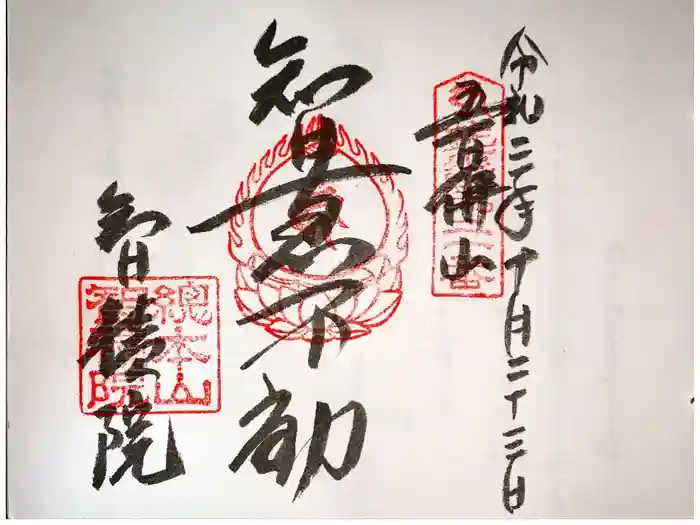 令和二年十月二十三日
五百佛山
智恵不動
智積院
總本山
智積院